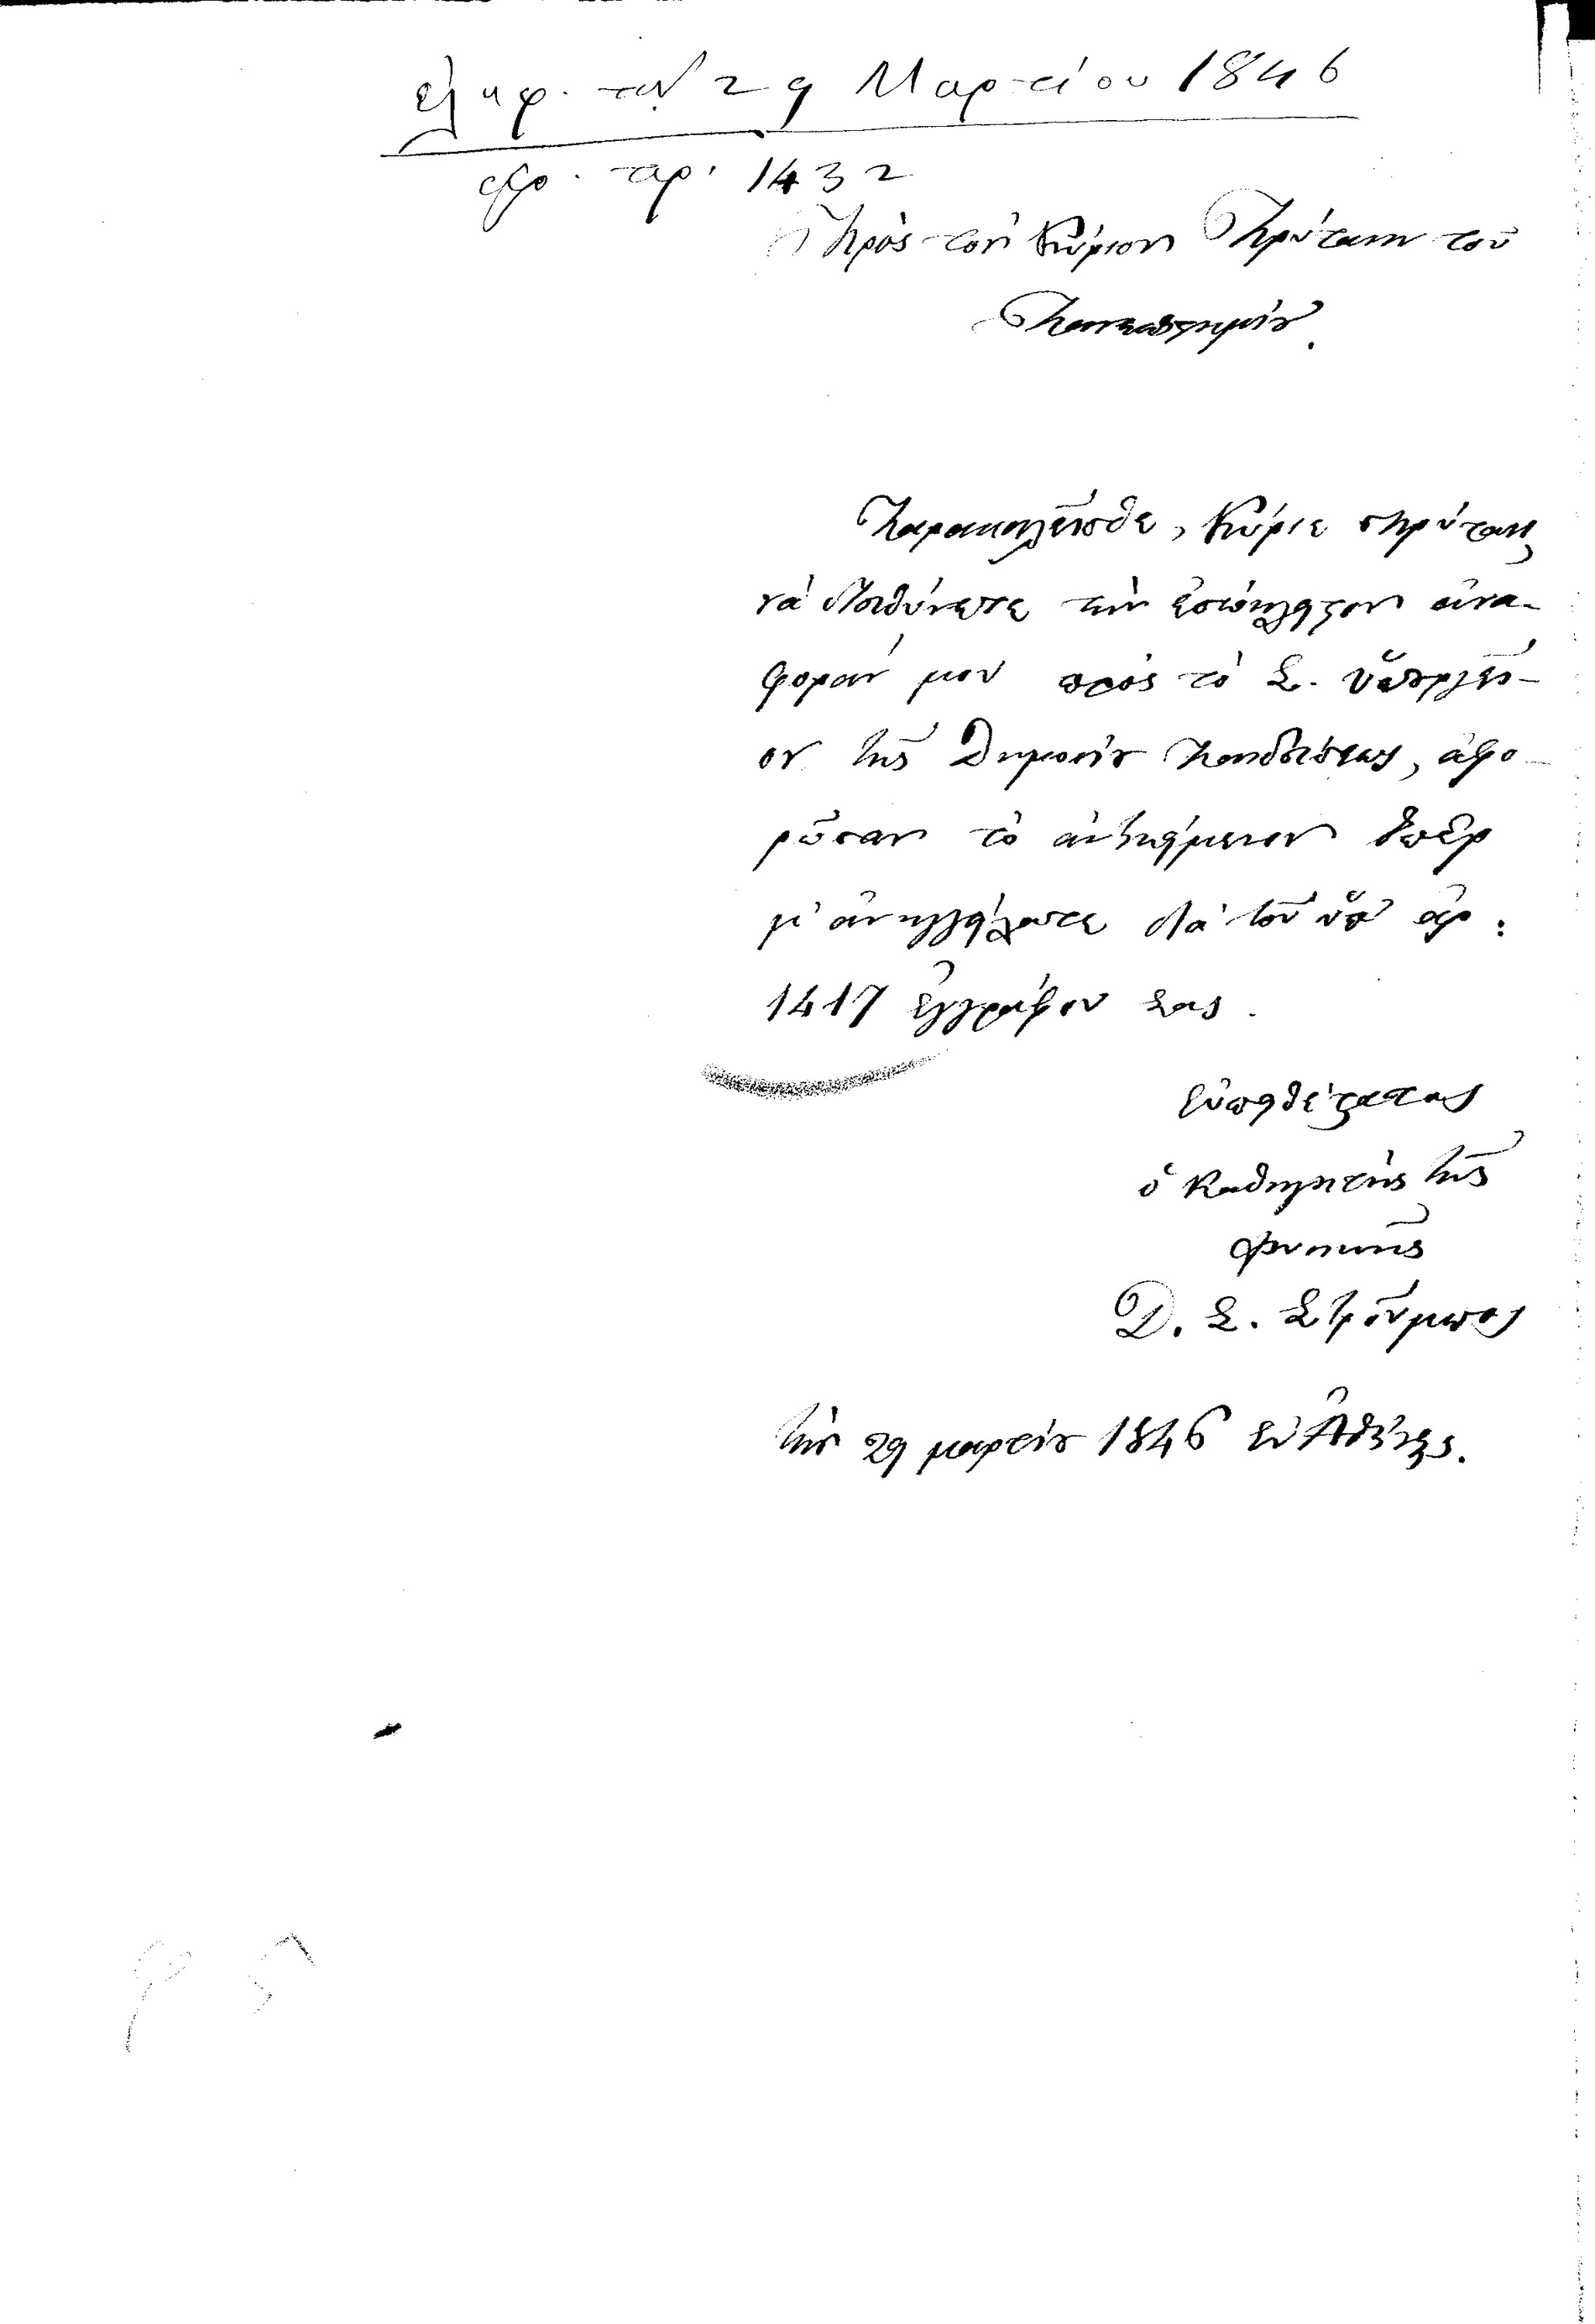 ἐλήφ. τὴν 29 Μαρτίου 1846
ἀρ. 1432
Πρὸς τὸν Κύριον Πρύτανιν τοῦ
Πανεπιστημίου.
Παρακαλεῖσθε, Κύριε Πρύτανι,
νὰ διευθύνετε τὴν ἐσώκλειστον ἀνα-
φοράν μου πρὸς τὸ Σ. Ὑπουργεῖ-
ον τῆς Δημοσίου Παιδεύσεως, ἀφο-
ρῶσαν τὸ ἀντικείμενον ὅπερ
μ' ἀνηγγείλατε διὰ τοῦ ὑπ' ἀρ:
1417 ἐγγράφου σας.
Εὐπειθέστατος
ὁ Καθηγητὴς τῆς
Φυσικῆς
Δ. Σ. Στρούμπος
τὴν 29 μαρτίου 1846 ἐν Ἀθήναις.